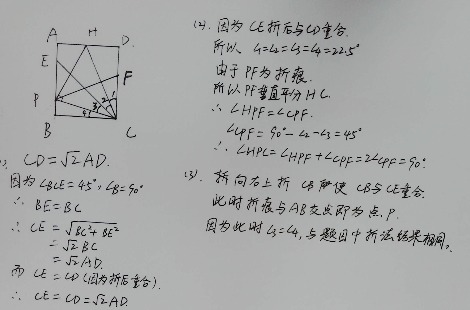 A H D
E
F
P
B C
1
2
3
4
(1) CD=√2AD.
因为∠BCE=45°, ∠B=90°
∴ BE=BC
∴ CE=√BC²+BE²
=√2BC
=√2AD.
而 CE=CD(因为折后重合).
∴ CE=CD=√2AD
(2). 因为CE折后与CD重合.
所以 ∠1=∠2=∠3=∠4=22.5°
由于PF为折痕.
所以PF垂直平分HC.
∴ ∠HPF=∠CPF.
∠CPF=90°-∠2-∠3=45°
∴ ∠HPC=∠HPF+∠CPF=2∠CPF=90°
(3). 折向右上折 CB 使CB与CE重合.
此时折痕与AB交点即为点P.
因为此时∠3=∠4,与题目中折法结果相同.